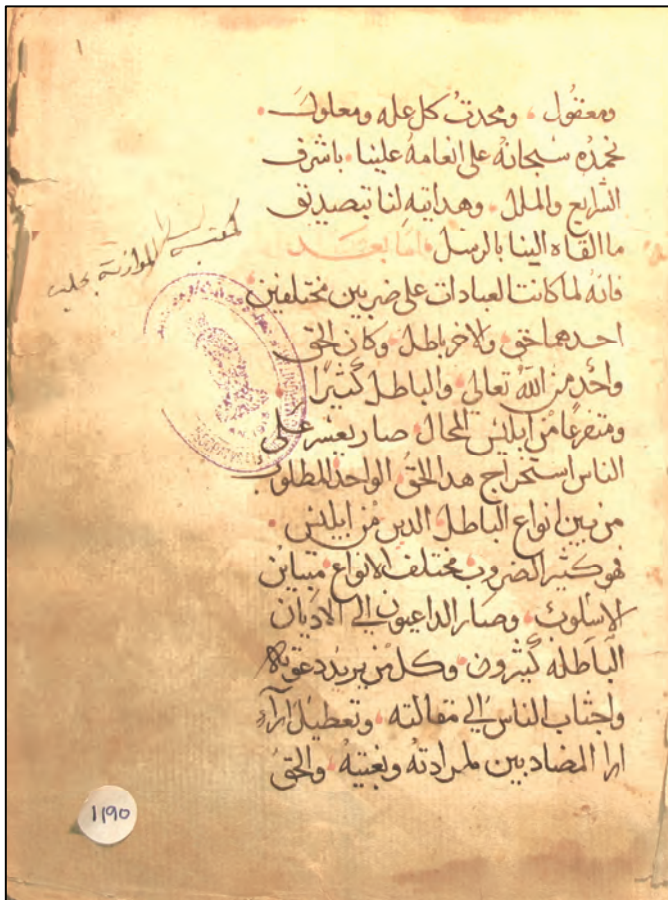 ومعقول، ومحدث كل عله ومعلول.
نحمده سبحانه على انعامه علينا. باشرف
الشرايع والملل. وهدايته لنا تبصديق
ما القاه الينا بالرسل. اما بعد
فانه لما كانت العبادات على ضربين مختلفين
احدهما حق. ولاخر باطل. وكان الحق
واحد من الله تعالي. والباطل كثيرًا.
ومتفرعًا من ابليس المحال. صار يعسر على
الناس استخراج هدا الحق الواحد المطلوب
من بين انواع الباطل الدين من ابليس.
فهو كثير الضروب. مختلف الانواع. متباين
الاسلوب. وصار الداعيون الي الاديان
الباطله كثيرون. وكل من يريد دعوة
واجتاب الناس الي مقالته. وتعطيل ارآء
ارا المضاددين لمرادته وبغيته. والحق
لمكتبة الموارنة بحلب
1190